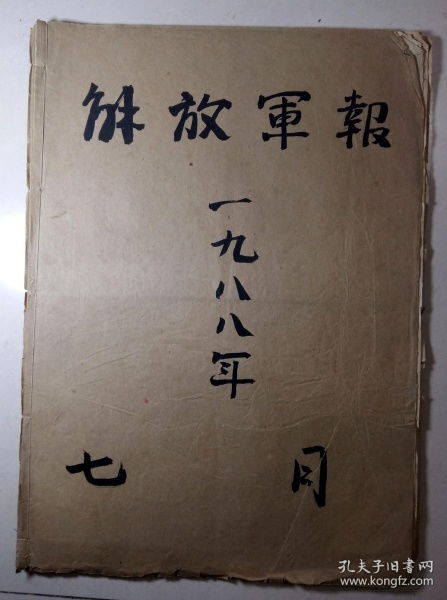 解放軍報
一九八八年
七月
孔夫子旧书网
www.kongfz.com